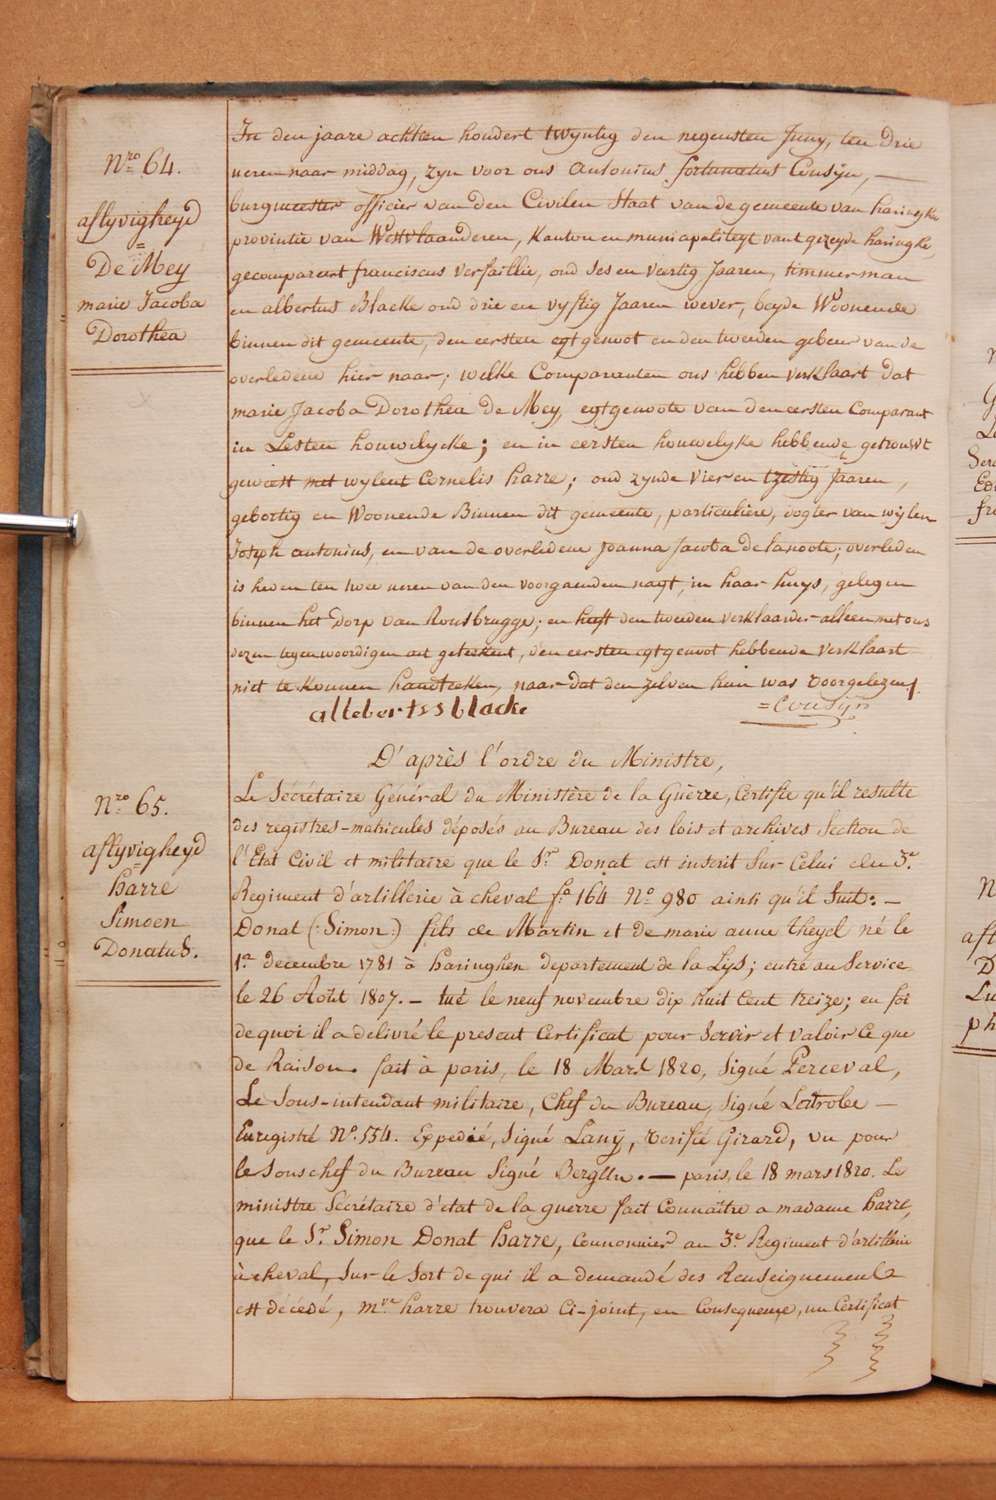 Nro 64.
aflyvigheyd
=
De Mey
marie Jacoba
Dorothea
In den jaare achtien hondert twyntig den negensten Juny, ten Drie
ueren naar middag, zyn voor ons Antonius fortunatus Cousyn, —
burgmeester officier van den Civilen Staat van de gemeente van haringhe
provintie van Westvlaanderen, Kanton en municipaliteyt van 't gezeyde haringhe,
gecompareert franciscus Versaillie, oud ses en veertig Jaaren, timmerman
en albertus Blacke oud drie en vyftig Jaaren wever, beyde Woonende
binnen dit gemeente, den eersten egtgenoot en den tweeden gebeur van de
overledene hier naar; welke Comparanten ons hebben verklaart dat
marie Jacoba Dorothea De Mey, egtgenoote van den eersten Comparant
in Lesten houwelycke; en in eersten houwelyke hebbende getrouwt
geweest met wylent Cornelis harre; oud zynde Vier en tzestig Jaaren,
gebortig en Woonende Binnen dit gemeente, particuliere, dogter van wylen
Joseph antonius, en van de overledene Joanna Jacoba Delanoote; overleden
is heden ten twee ueren van den voorgaenden nagt, in haar huys, gelegen
binnen het Dorp van Rousbrugge; en heeft den tweeden verklaarder alleen met ons
dezen tegenwoordigen act geteekent, den eersten egtgenoot hebbende verklaart
niet te konnen handteeken, naar dat den zelven hun was voorgelezen.
allebertus blacke
=Cousyn
Nro 65.
aflyvigheyd
harre
Simoen
Donatus.
D'après l'ordre du Ministre,
Le Sécrétaire Général du Ministère de la Guèrre, Certifie qu'il resulte
des registres-matricules déposés au Bureau des lois et archives Section de
l'Etat Civil et militaire que le Sr. Donat est inscrit Sur Celui du 3e.
Regiment d'artillerie à cheval fo. 164 No. 980 ainsi qu'il Suit: —
Donat (:Simon:) fils de Martin et de marie anne Theyd né le
1er decembre 1781 à haringhen departement de la Lys; entré au Service
le 26 Août 1807. — tué le neuf novembre dix huit Cent treize; en foi
de quoi il a delivré le present Certificat pour Servir et valoir Ce que
de Raison. fait à paris, le 18 Mars 1820, Signé Perceval,
Le Sous-intendant militaire, Chef du Bureau, Signé —
Enregistré No. 554. Expedié, Signé Lany, Verifié Girard, vu pour
le Souschef du Bureau Signé . — paris, le 18 mars 1820. Le
ministre Sécrétaire d'état de la guerre fait Connaître a madame harre,
que le Sr. Simon Donat harre, Connonier au 3e. Regiment d'artillerie
à cheval, Sur le Sort de qui il a demandé des Renseignements
est décédé, me. harre trouvera Ci-joint, en Consequence, un Certificat